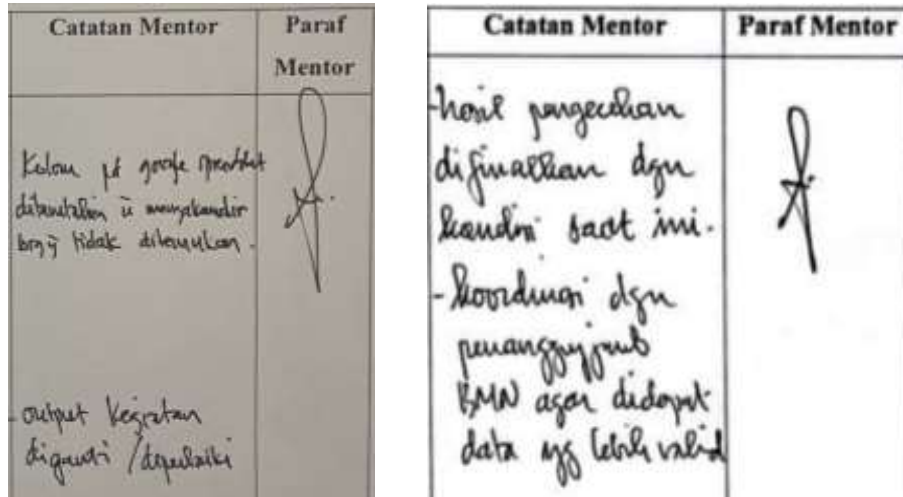 Catatan Mentor
Paraf
Mentor
Kolom pd google spreadsheet
ditambahkan u
brg yg tidak ditemukan.
- output kegiatan
diganti / diperbaiki
Catatan Mentor
Paraf Mentor
- hasil pengecekan
difinalkan dgn
kondisi saat ini.
- koordinasi dgn
penanggungjwb
BMN agar didapat
data yg lebih valid